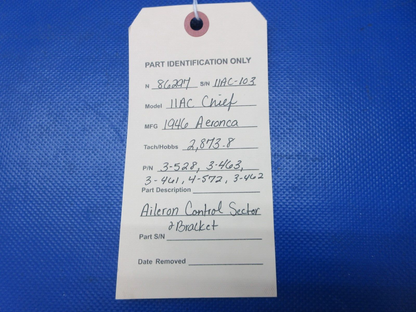 PART IDENTIFICATION ONLY
N 86227 S/N 11AC-103
Model 11AC Chief
MFG 1946 Aeronca
Tach/Hobbs 2,873.8
P/N 3-528, 3-463,
3-461, 4-572, 3-462
Part Description
Aileron Control Sector
& Bracket
Part S/N
Date Removed